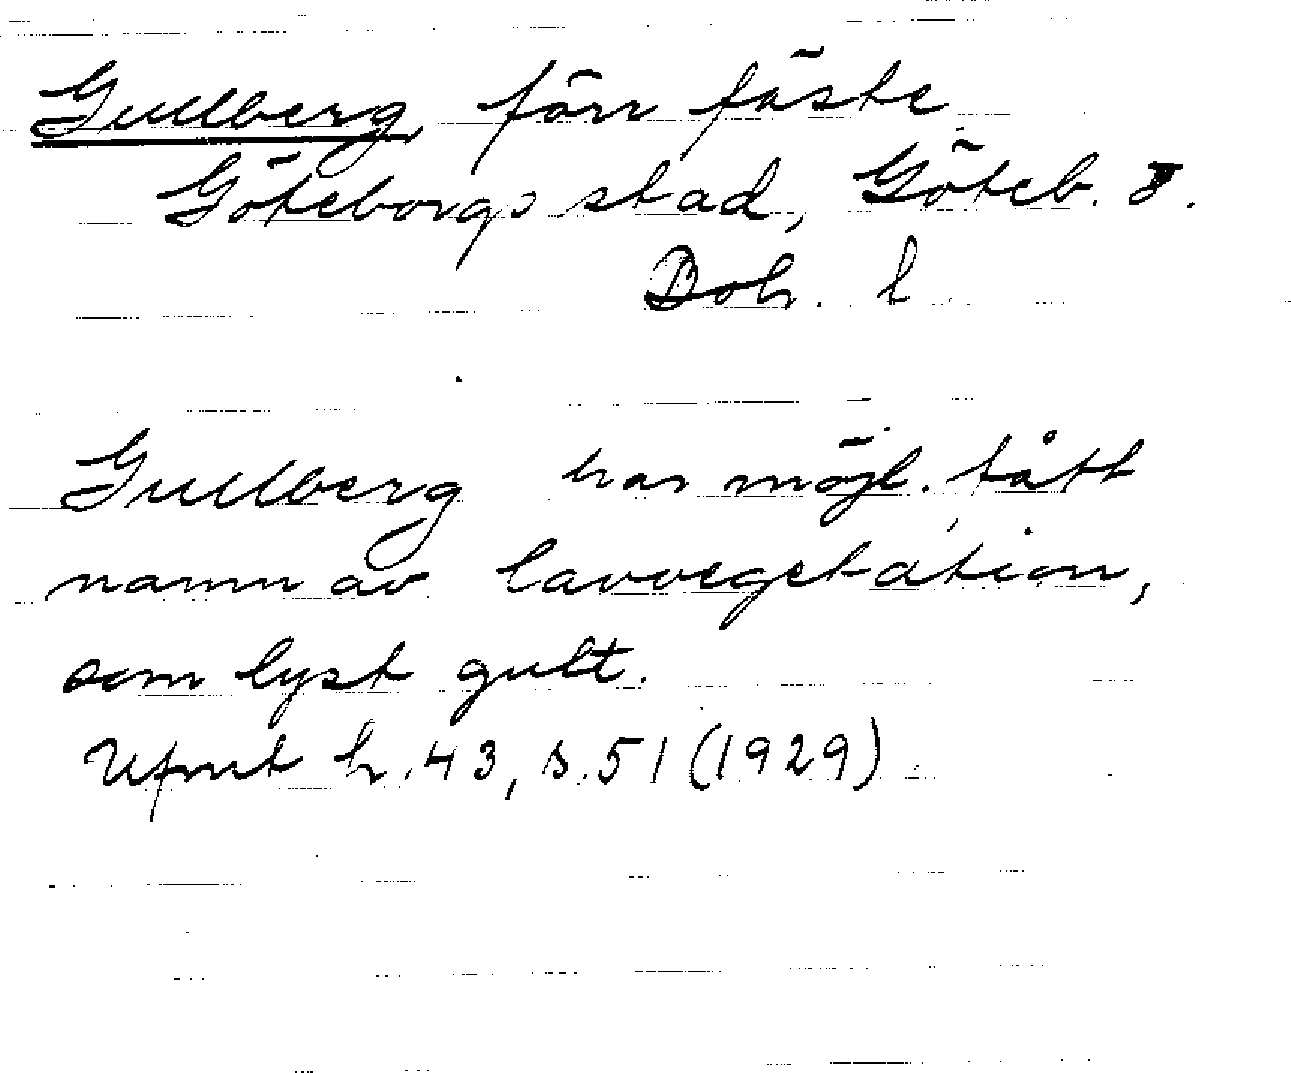 Gullberg, förr fäste
Göteborgs stad, Göteb. o.
Boh. l
Gullberg har möjl. fått
namn av lavvegetation,
som lyst gult.
Ufmt h. 43, s. 51 (1929)